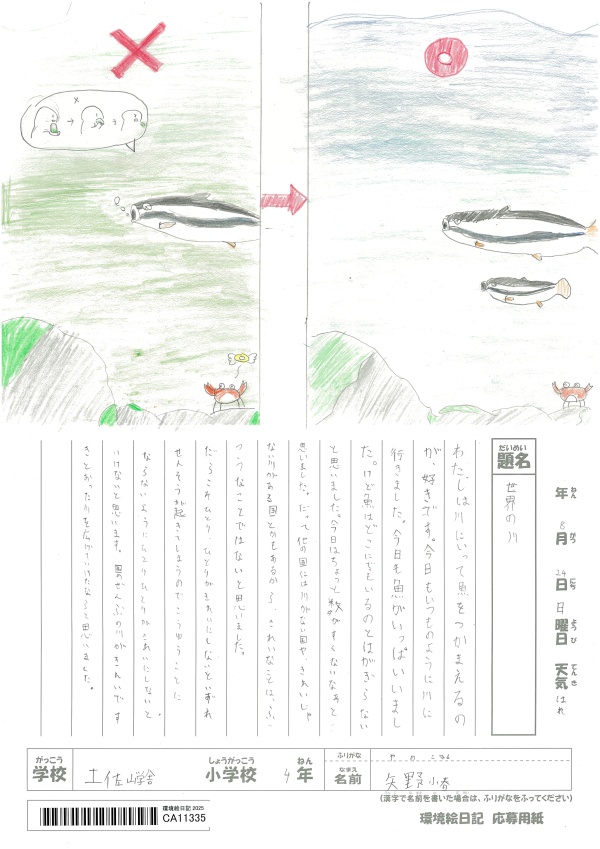 題名
だいめい
世界の川
年 ねん
8 月 がつ
24 日 にち
日 曜日 ようび
天気 てんき はれ
わたしは川にいって魚をつかまえるの
が、好きです。今日もいつものように川に
行きました。今日も魚がいっぱいいまし
た。けど魚はどこにでもいるのとはかぎらない
と思いました。今日はちょっと数がすくないなあと
思いました。だって他の国には川がない国や、きれいじゃ
ない川がある国とかもあるから、きれいなことは、ふ
つうなことではないと思いました。
だからこそひとり、ひとりがきれいにしないといずれ
せんそうが起きてしまうのでこうゆうことに
ならないようにひとりひとりがきれいにしないと、
いけないと思います。
ぜんぶの川がきれいです
きとおったりを広げていけたならと思いました。
がっこう 学校
土佐山学舎
しょうがっこう 小学校
4 年 ねん
ふりがな
なまえ 名前
矢野 小春
(漢字で名前を書いた場合は、ふりがなをふってください)
環境絵日記 2025
CA11335
環境絵日記 応募用紙